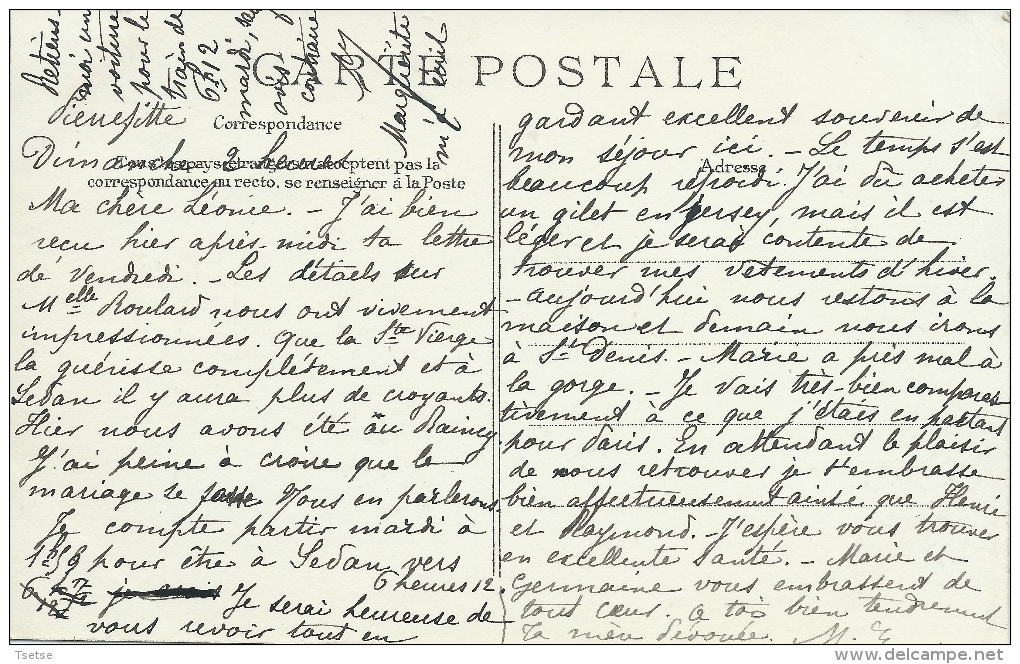 Retiens-
moi une
voiture
pour le
train de
6h12
mardi, sauf
avis
contraire
Marguerite
CARTE POSTALE
Pierrefitte
Correspondance
Dimanche 2 heures
Tous les pays étrangers n'acceptent pas la
correspondance au recto, se renseigner à la Poste
Ma chère Léonie. - J'ai bien
reçu hier après-midi ta lettre
de vendredi. - Les détails sur
Melle Roulard nous ont vivement
impressionnées. Que la Ste Vierge
la guérisse complètement et à
Sedan il y aura plus de croyants.
Hier nous avons été au Raincy
J'ai peine à croire que le
mariage se fasse Nous en parlerons.
Je compte partir mardi à
1h59 pour être à Sedan vers
6 heures 12.
Je serai heureuse de
vous revoir tout en
Adresse
gardant excellent souvenir de
mon séjour ici. - Le temps s'est
beaucoup refroidi. J'ai dû acheter
un gilet en jersey, mais il est
léger et je serai contente de
trouver mes vêtements d'hiver.
- Aujourd'hui nous restons à la
maison et demain nous irons
à St Denis. - Marie a près mal à
la gorge. - Je vais très-bien compara
tivement à ce que j'étais en partant
pour Paris. En attendant le plaisir
de nous retrouver je t'embrasse
bien affectueusement ainsi que Henri
et Raymond. - J'espère vous trouver
en excellente santé. - Marie et
Germaine vous embrassent de
tout cœur. à toi bien tendrement
Ta mère dévouée. M. E
Tsetse
delcampe.net